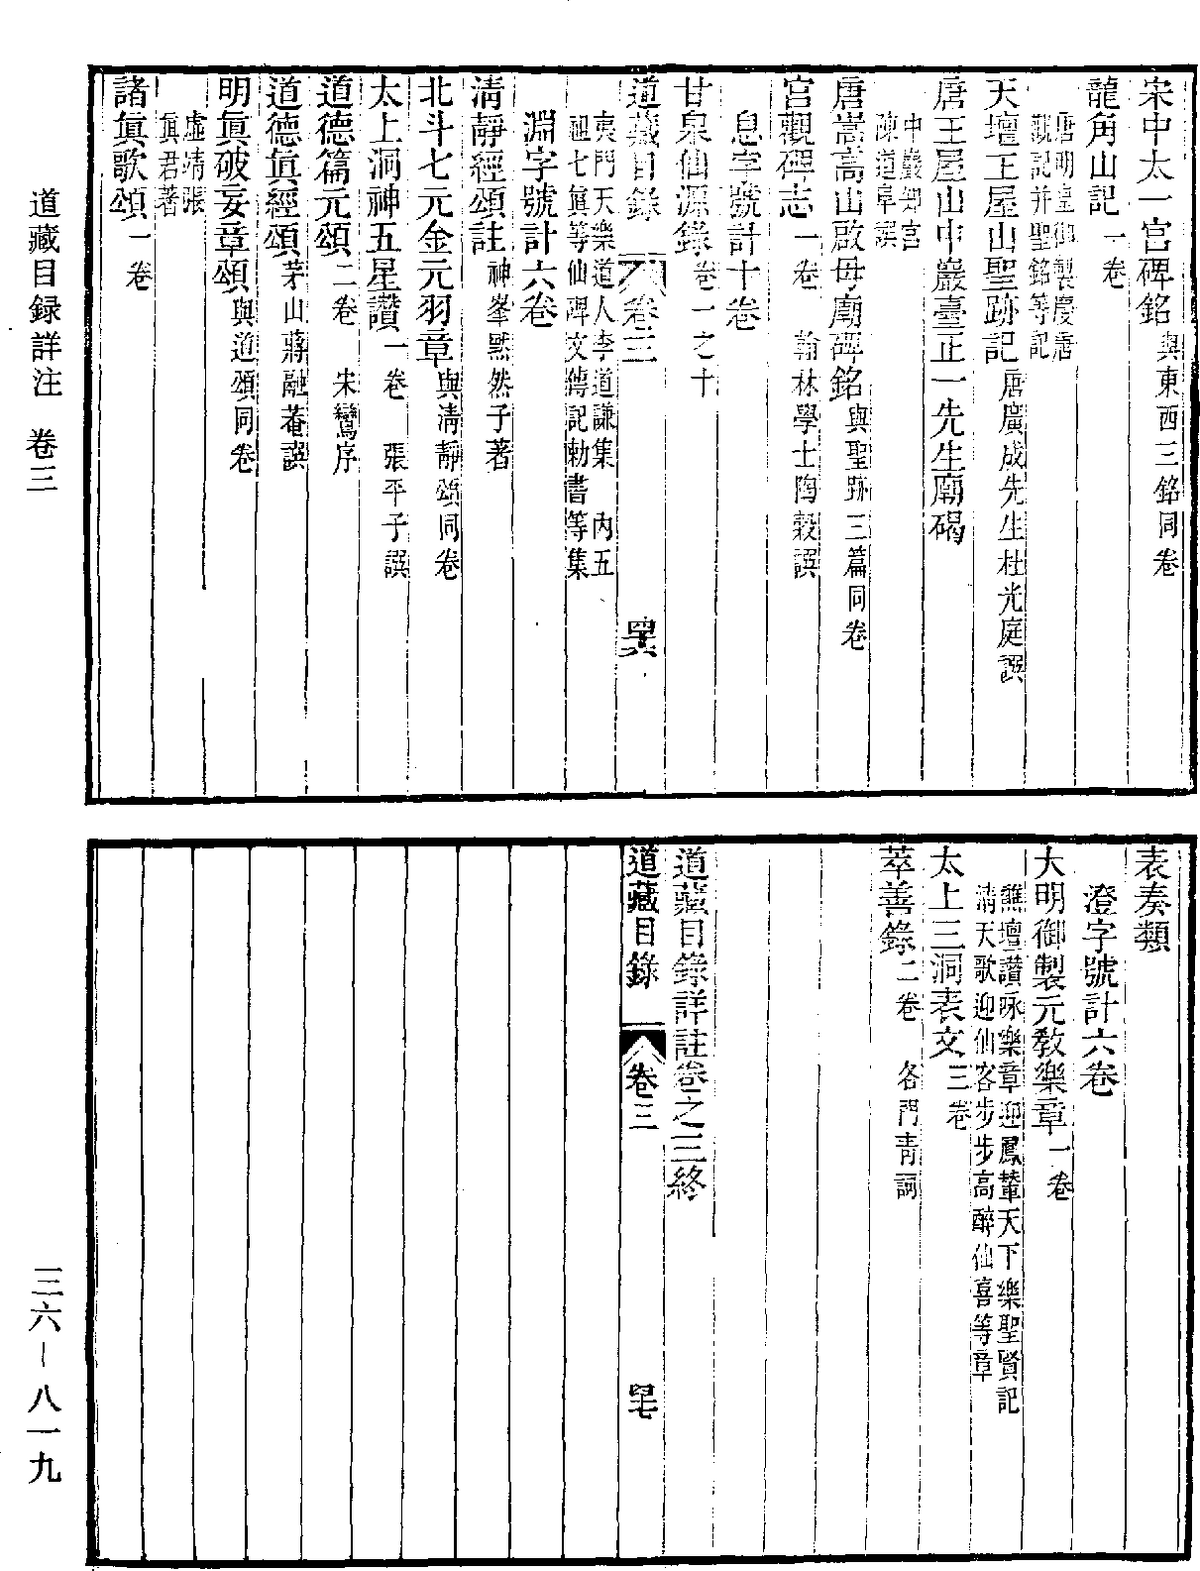 宋中太一宮碑銘與東西三銘同卷
龍角山記一卷
唐明皇御製慶唐
觀記并聖銘等記
天壇王屋山聖跡記唐廣成先生杜光庭譔
唐王屋山中巖臺正一先生廟碣
中巖鄉宮
陳道阜譔
唐嵩高山啟母廟碑銘與聖跡三篇同卷
宮觀碑志一卷 翰林學士陶穀譔
息字號計十卷
甘泉仙源錄卷一之十
道藏目錄 卷三 罡六
夷門天樂道人李道謙集 內五
祖七眞等仙碑文傳記勅書等集
淵字號計六卷
淸靜經頌註神峯黙然子著
北斗七元金元羽章與淸靜頌同卷
太上洞神五星讚一卷 張平子譔
道德篇元頌二卷 宋鸞序
道德眞經頌茅山蔣融菴譔
明眞破妄章頌與道頌同卷
虛靖張
眞君著
諸眞歌頌一卷
表奏類
澄字號計六卷
大明御製元敎樂章一卷
醮壇讚咏樂章迎鳳輦天下樂聖賢記
淸天歌迎仙客步步高醉仙喜等章
太上三洞表文三卷
萃善錄二卷 各門靑詞
道藏目錄詳註卷之三終
道藏目錄 卷三 罡七
道藏目録詳注 卷三
三六－八一九